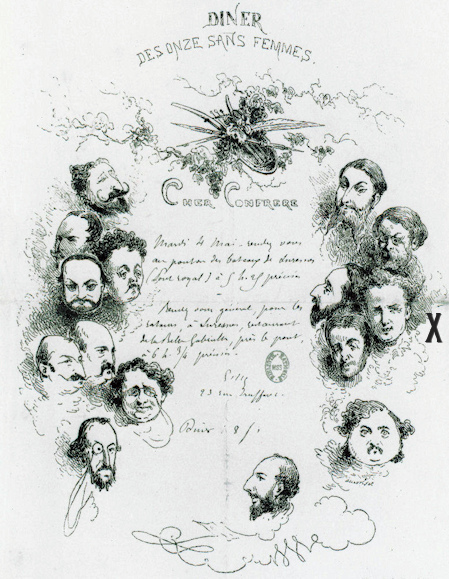 DINER
DES ONZE SANS FEMMES.
CHER CONFRERE
Mardi 4 Mai. rendez vous
au ponton des bateaux de Suresnes
(Pont royal) à 5 h
Rendez vous général pour les
à Suresnes restaurant
de la Belle Gabrielle, près le pont
à 6 h 3/4 précises.
Gill
23 rue
X